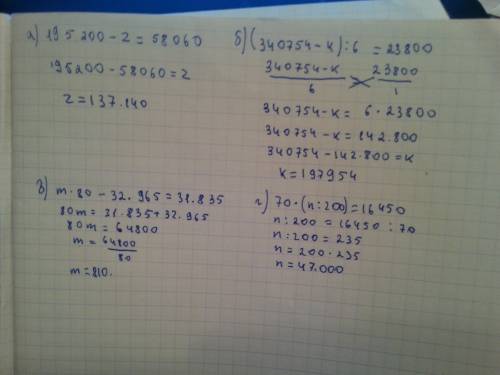 а) 195 200 - z = 58060
195200 - 58060 = z
z = 137.140
б) (340754 - к) : 6 = 23800
340754 - к 23800
6 1
340754 - к = 6 · 23800
340754 - к = 142.800
340754 - 142.800 = к
к = 197954
в) m · 80 - 32.965 = 31.835
80m = 31.835 + 32.965
80m = 64800
m = 64800
80
m = 810.
г) 70 · (n : 200) = 16450
n : 200 = 16450 : 70
n : 200 = 235
n = 200 · 235
n = 47.000